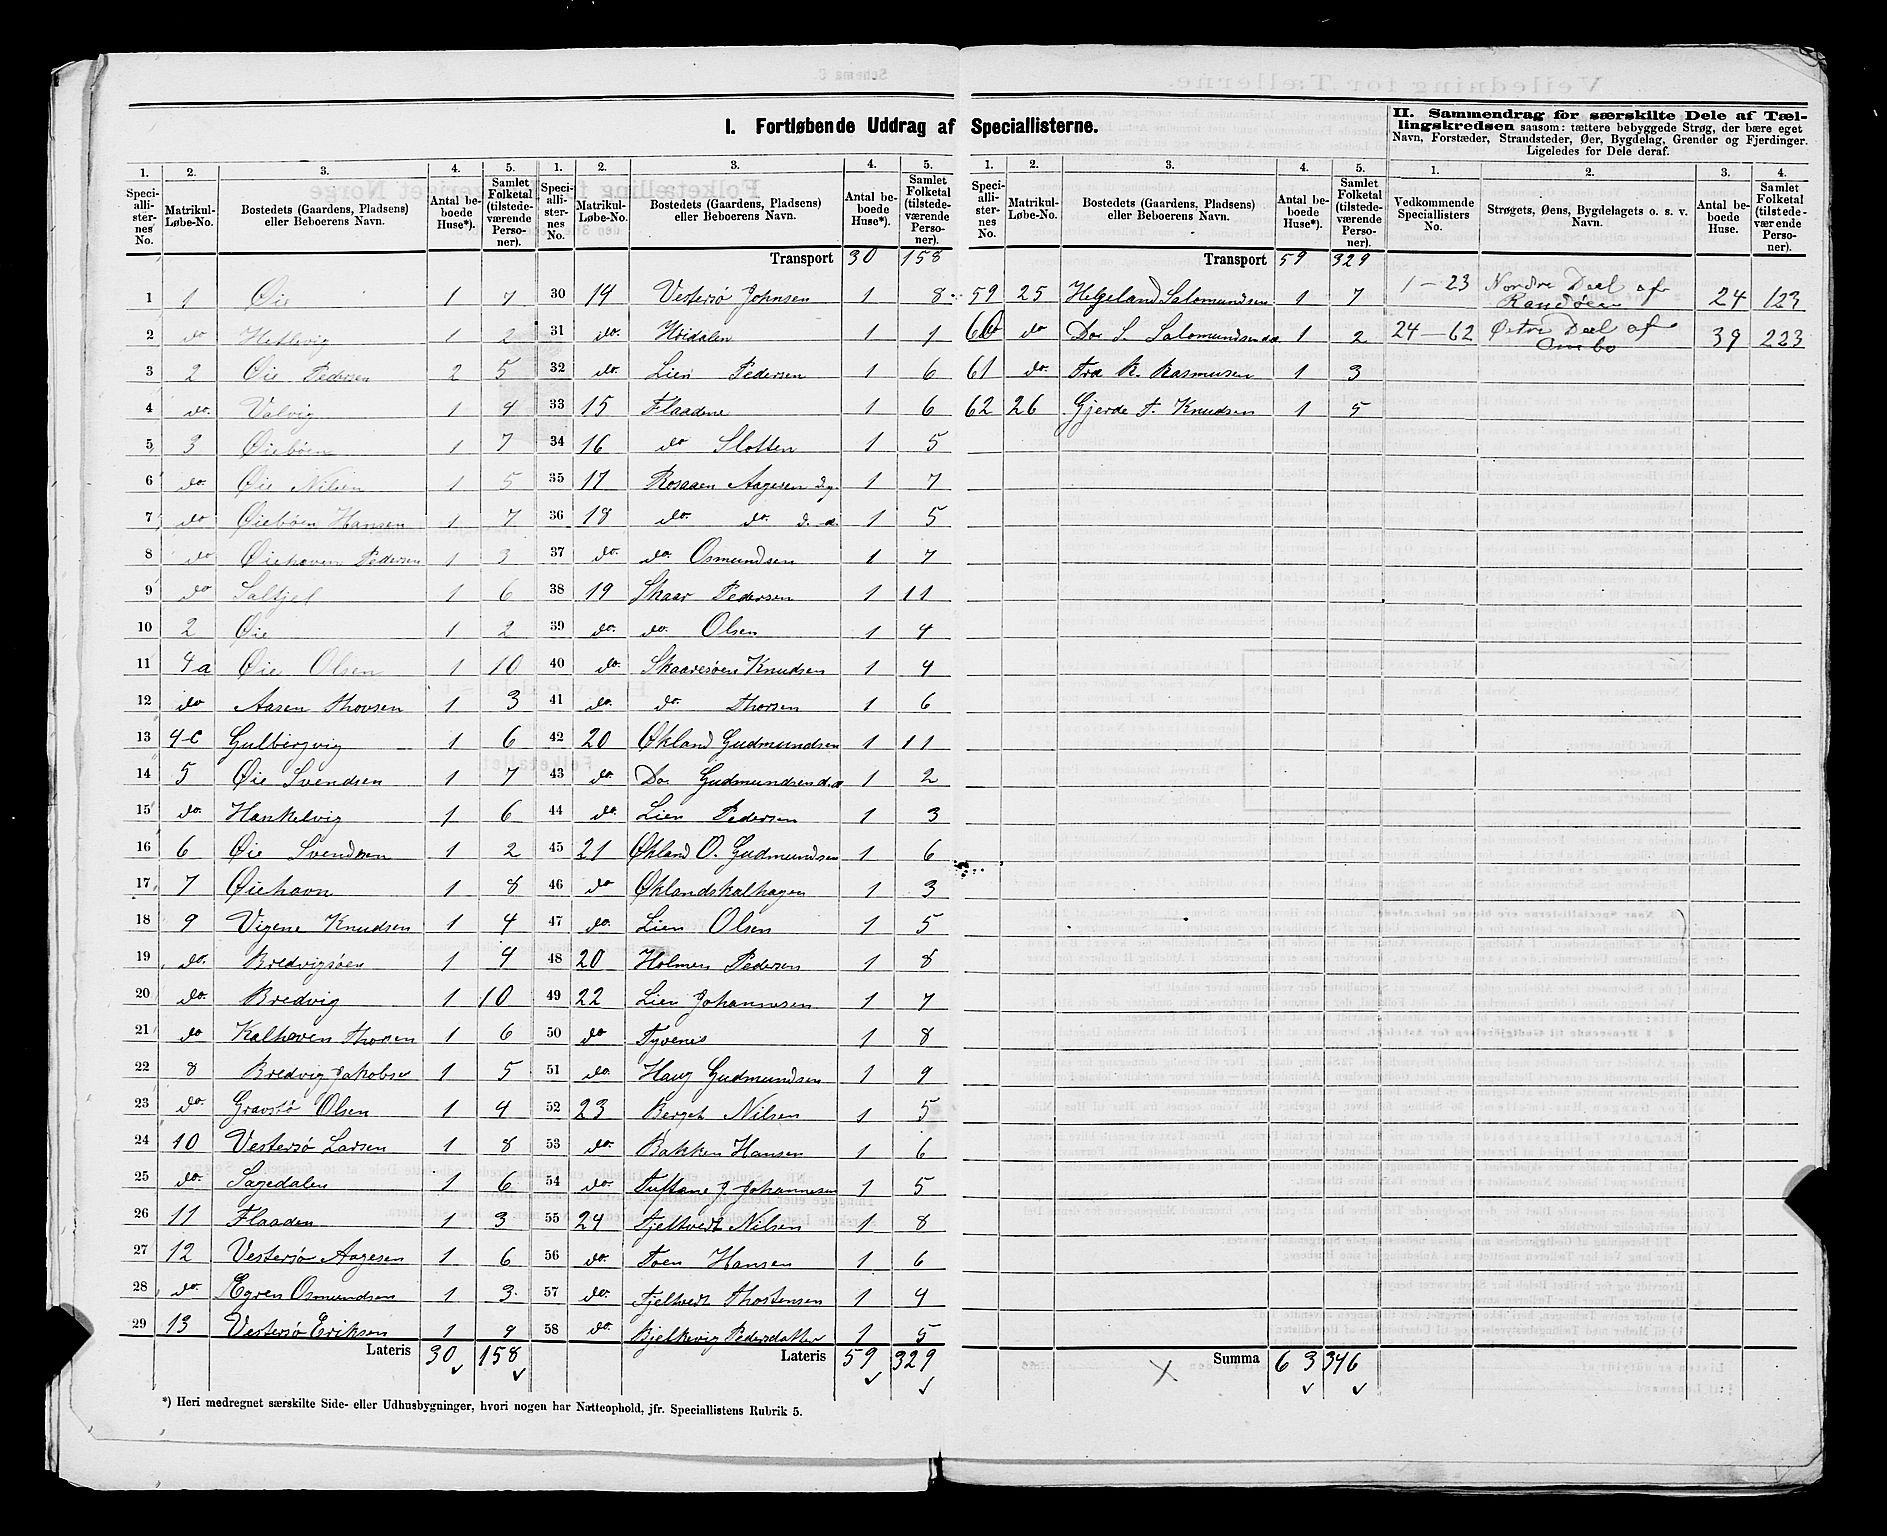 I. Fortløbende Uddrag af Speciallisterne.
1. 2. 3. 4. 5.
Speciallisternes No. Matrikul-Løbe-No. Bostedets (Gaardens, Pladsens) eller Beboerens Navn. Antal beboede Huse*). Samlet Folketal (tilstedeværende Personer).
1 1 Øie 1 7
2 do Hetlevig 1 2
3 2 Øie Pedersen 2 5
4 do. Valvig 1 4
5 3 Øiebøen 1 7
6 do. Øie Nilsen 1 5
7 do Øiebøen Hansen 1 7
8 do Øiehaven Pedersen 1 3
9 do Saltjel 1 6
10 2 Øie 1 2
11 4a Øie Olsen 1 10
12 do Aasen Thorsen 1 3
13 4c Gulbergvig 1 6
14 5 Øie Svendsen 1 7
15 do. Hankelvig 1 6
16 6 Øie Svendsen 1 2
17 7 Øiehavn 1 8
18 9 Vigene Knudsen 1 4
19 do. Bredvigsøen 1 4
20 do. Bredvig 1 10
21 do Kalhaven Thorsen 1 6
22 8 Bredvig Jakobse 1 5
23 do. Gravstø Olsen 1 4
24 10 Vestersø Larsen 1 8
25 do. Sagedalen 1 6
26 11 Flaaden 1 3
27 12 Vestersø Aagesen 1 6
28 do. Egren Osmundsen 1 3
29 13 Vestersø Eriksen 1 9
Lateris 30 158
*) Heri medregnet særskilte Side- eller Udhusbygninger, hvori nogen har Natteophold, jfr. Speciallistens Rubrik 5.
1. 2. 3. 4. 5.
Speciallisternes No. Matrikul-Løbe-No. Bostedets (Gaardens, Pladsens) eller Beboerens Navn. Antal beboede Huse*). Samlet Folketal (tilstedeværende Personer).
Transport 30 158
30 14 Vestersø Johnsen 1 8
31 do. Hvidalen 1 1
32 do. Lien Pedersen 1 6
33 15 Flaadene 1 6
34 16 do Slotten 1 5
35 17 Rosaaen Aagesen 1 7
36 18 do. do. 1 5
37 do. do. Osmundsen 1 7
38 19 Skaar Pedersen 1 11
39 do. do. Olsen 1 4
40 do. Skaaresøen Knudsen 1 4
41 do. do. Thorsen 1 6
42 20 Økland Gudmundsen 1 11
43 do. Do. Gudmundsen d.æ 1 2
44 do. Lien Pedersen 1 3
45 21 Økland O. Gudmundsen 1 6
46 do Øklandskalhagen 1 3
47 do. Lien Olsen 1 5
48 20 Holmen Pedersen 1 8
49 22 Lien Johannesen 1 7
50 do Tyvenes 1 8
51 do. Haug Gudmundsen 1 9
52 23 Berget Nilsen 1 5
53 do. Bakken Hansen 1 6
54 do. Tuftane J Johannesen 1 5
55 24 Fjeltvedt Nilsen 1 8
56 do. Toen Hansen 1 6
57 do. Fjeltvedt Thostensen 1 4
58 do. Bjelkevig Pedersdatter 1 5
Lateris 59 329
1. 2. 3. 4. 5.
Speciallisternes No. Matrikul-Løbe-No. Bostedets (Gaardens, Pladsens) eller Beboerens Navn. Antal beboede Huse*). Samlet Folketal (tilstedeværende Personer).
Transport 59 329
59 25 Helgeland Salomundsen 1 7
60 do Do. S. Salomundsen 1 2
61 do. Træ R. Rasmusen 1 3
62 26 Gjerde T. Knudsen 1 5
Summa 63 346
II. Sammendrag for særskilte Dele af Tællingskredsen saasom: tættere bebyggede Strøg, der bære eget Navn, Forstæder, Strandsteder, Øer, Bygdelag, Grender og Fjerdinger. Ligeledes for Dele deraf.
1. 2. 3. 4.
Vedkommende Speciallisters No. Strøgets, Øens, Bygdelagets o. s. v. Navn. Antal beboede Huse. Samlet Folketal (tilstedeværende Personer).
1-23 Nordre Deel af Randøen 24 123
24-62 Østre Deel af Ombo 39 223